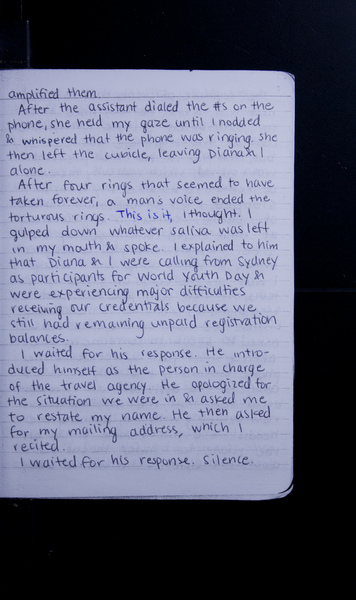 amplified them.
After the assistant dialed the #s on the
phone, she held my gaze until I nodded
& whispered that the phone was ringing. She
then left the cubicle, leaving Diana & I
alone.
After four rings that seemed to have
taken forever, a man's voice ended the
torturous rings. This is it, I thought. I
gulped down whatever saliva was left
in my mouth & spoke. I explained to him
that Diana & I were calling from Sydney
as participants for World Youth Day &
were experiencing major difficulties
receiving our credentials because we
still had remaining unpaid registration
balances.
I waited for his response. He intro-
duced himself as the person in charge
of the travel agency. He apologized for
the situation we were in & asked me
to restate my name. He then asked
for my mailing address, which I
recited.
I waited for his response. Silence.